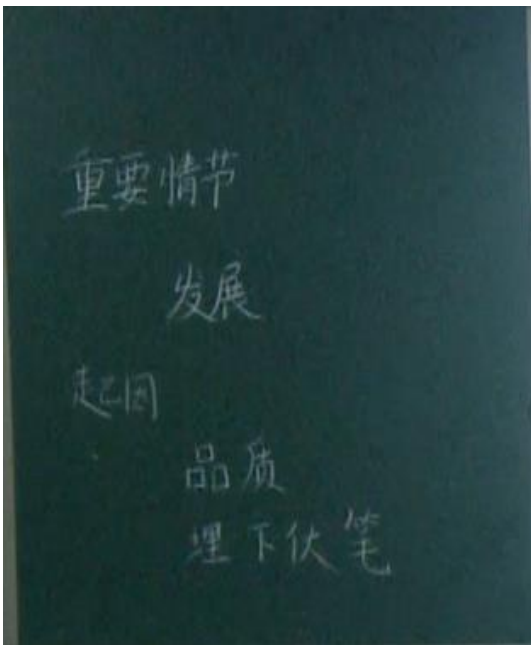 重要情节
发展
起因
品质
埋下伏笔